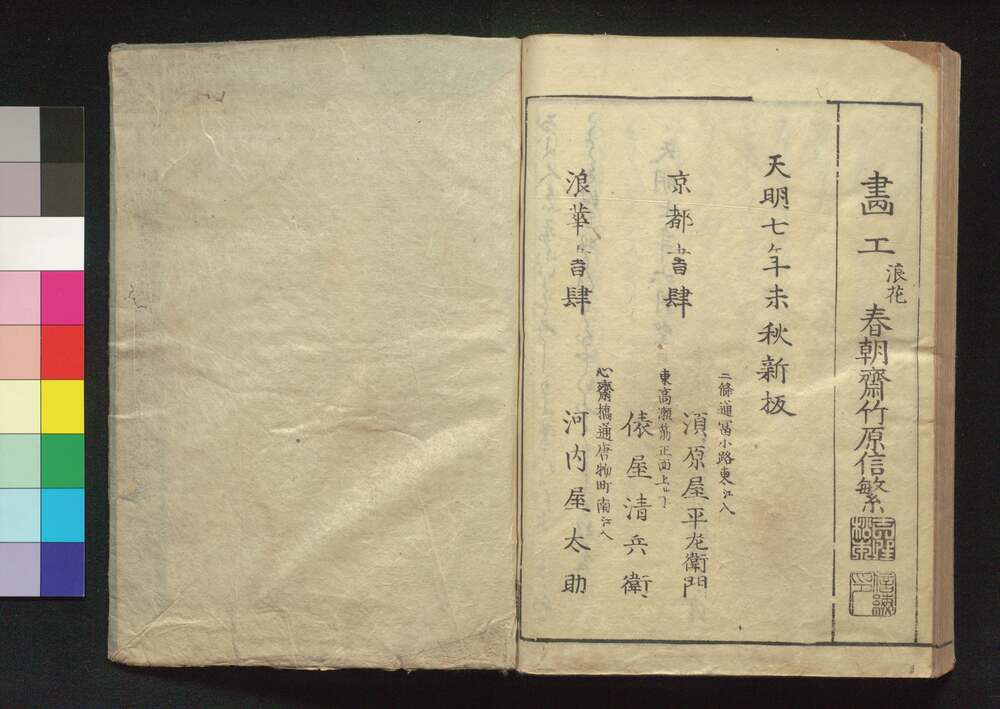 畫工
浪花
春朝齋竹原信繁
天明七年未秋新板
京都書肆
二條通冨小路東江入
須原屋平左衛門
東高瀬筋正面上ル
俵屋清兵衛
浪華書肆
心齋橋通唐物町南江入
河内屋太助